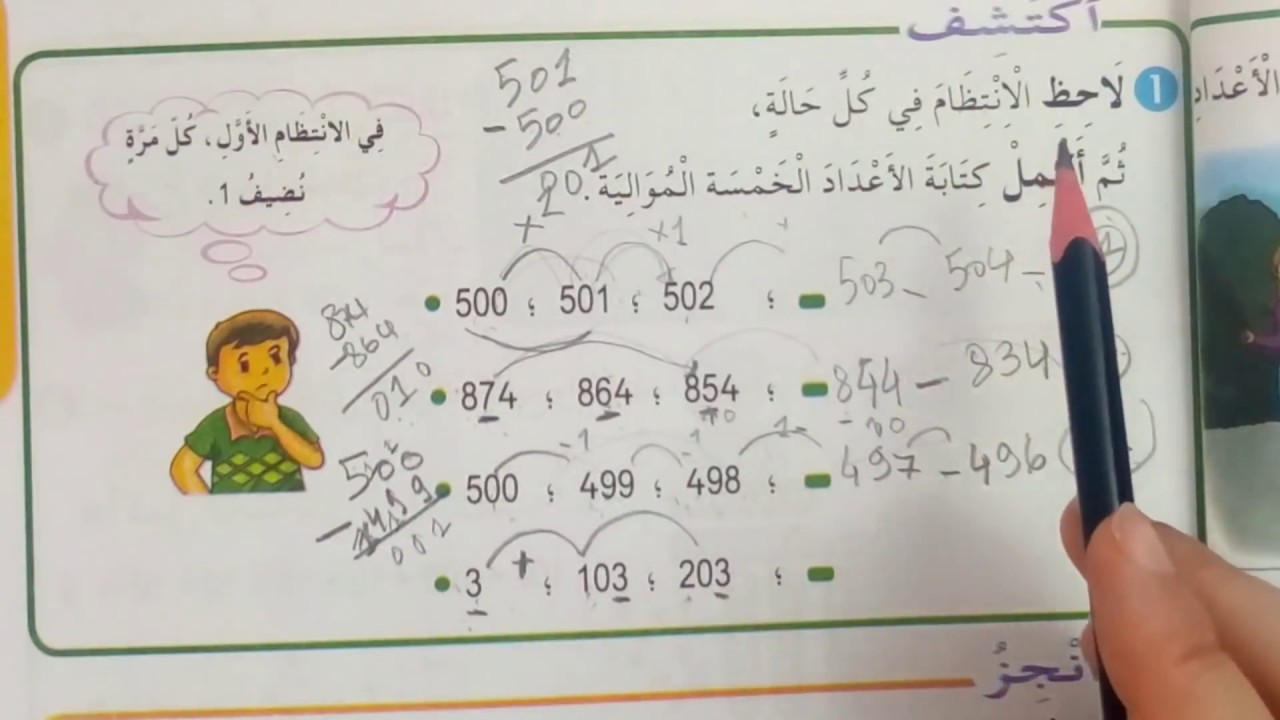 أَكْتَشِف
1 لَاحِظِ الْاِنْتِظَامَ فِي كُلِّ حَالَةٍ،
ثُمَّ كِتَابَةَ الأَعْدَادَ الْخَمْسَة الْمُوَالِيَة.
فِي الانْتِظَامِ الأَوَّلِ، كُلَّ مَرَّةٍ
نُضِيفُ 1.
501
- 500
+ +1 +
• 500 ؛ 501 ؛ 502 ؛ 503 - 504 -
874
-864
010
• 874 ؛ 864 ؛ 854 ؛ - 834
-1 -1 1-
500
• 500 ؛ 499 ؛ 498 ؛ 497 - 496
+
• 3 ؛ 103 ؛ 203 ؛
الْأَعْدَادِ